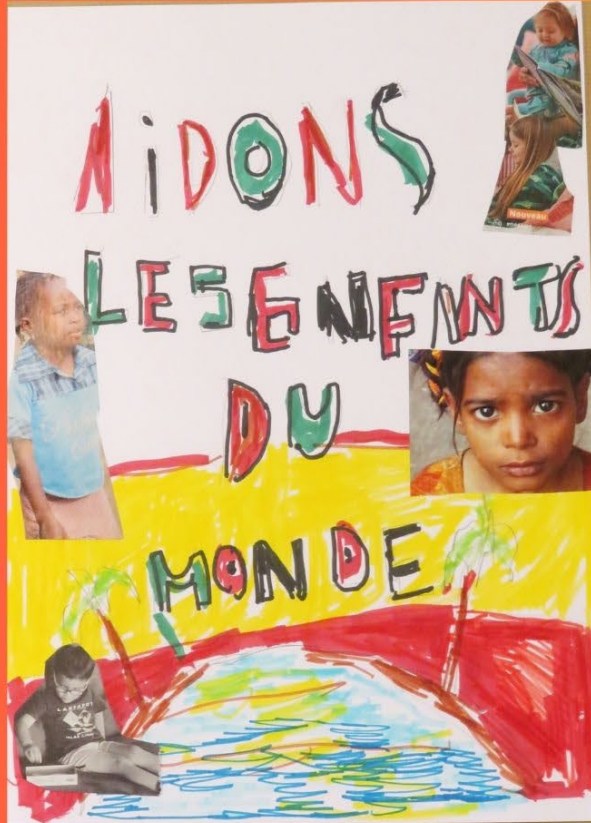 AIDONS
LES ENFANTS
DU
MONDE
Nouveau